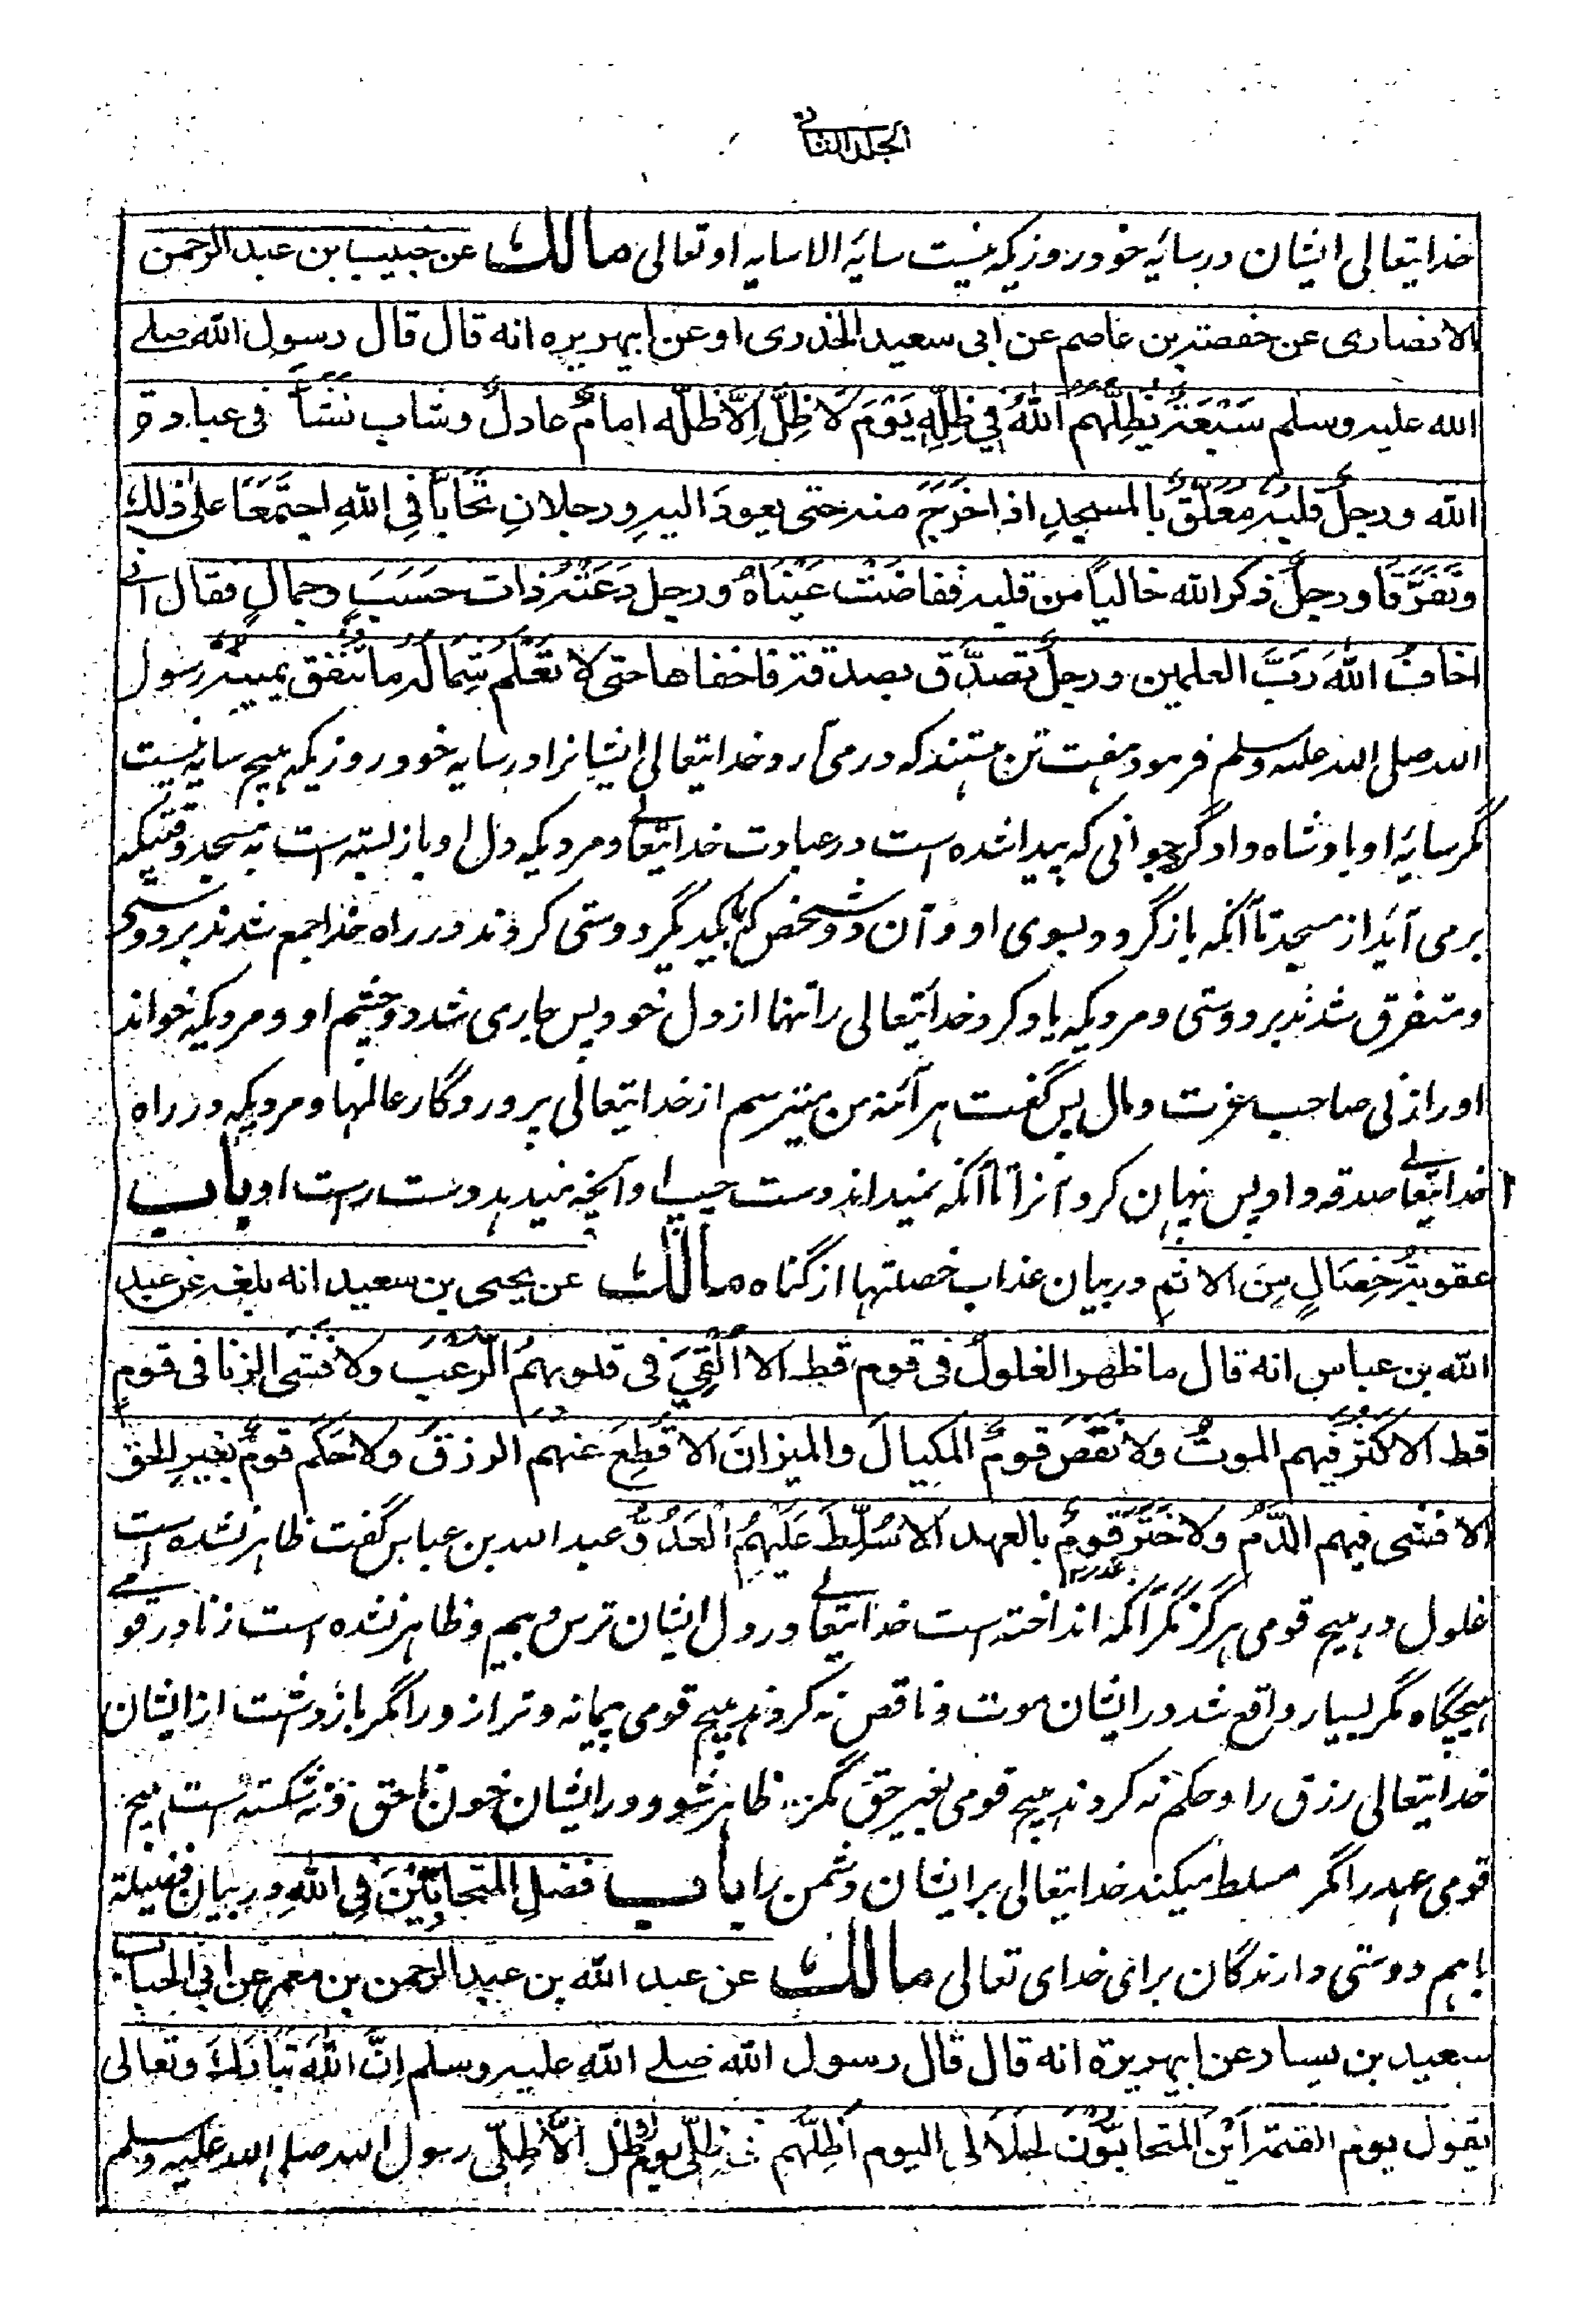 الجلد الثانی
خدایتعالی ایشان در سایهٔ خود روزیکه نیست سایهٔ الا سایه او تعالی مالك عن خبیب بن عبد الرحمن
الانصاری عن حفصة بن عاصم عن ابی سعید الخدری او عن ابیهریره انه قال قال رسول الله صلے
الله علیه وسلم سَبْعَةٌ یُظِلُّهُم اللّٰهُ فِي ظِلِّهِ یَوْمَ لَا ظِلَّ اِلَّا ظلّه امامٌ عادلٌ وشاب نَشَأَ فی عبادة
الله ورجلٌ قلبه مُعَلَّقٌ بالمسجدِ اذا خَرَجَ منه حتی یعودَ الیهِ ورجلانِ تَحَابَّا فِی اللهِ اجتَمَعَا علیٰ ذلك
وتَفَرَّقَا ورجلٌ ذکر الله خالیاً من قلبه ففاضَتْ عَیْنَاهُ ورجل دَعَتْهُ ذات حَسَبَ وجمالٍ فقال انی
اخافُ اللهَ رَبَّ العلمین ورجلٌ تَصدَّق بصدقة فاخفاها حتی لا تَعْلَمَ شِمَالُه ما تُنْفِق یمینه رسول
الله صلی الله علیه وسلم فرمود هفت تن هستند که در می آرد خدایتعالی ایشانرا در سایه خود روزیکه هیچ سایه نیست
مگر سایهٔ او بادشاه دادگر جوانی که پیدا شده است در عبادت خدایتعالی و مردیکه دل او باز بسته است به مسجد وقتیکه
برمی آید از مسجد تا آنکه باز گردد بسوی او و آن دو شخص که بایکدیگر دوستی کردند در راه خدا جمع شدند بر دوستی
و متفرق شدند بر دوستی و مردیکه یاد کرد خدایتعالی را تنها از دل خود پس جاری شد دو چشم او و مردیکه خواند
او را زنی صاحب عزت و مال پس گفت هر آئنه من میترسم از خدایتعالی پروردگار عالمها و مردیکه در راه
خدایتعالی صدقه داد پس پنهان کرد آنرا تا آنکه نمیداند دست چپ او آنچه میدهد دست راست او باب
عقوبة خِصَالٍ مِنَ الاثم در بیان عذاب خصلتها از گناه مالك عن یحیی بن سعید انه بلغه عن عبد
الله بن عباس انه قال ما ظهر الغلولُ فی قوم قط الا اُلْقِیَ فی قلوبهمُ الرعبَ ولا فشی الزنا فی قومٍ
قط الا کثُرَ فیهم الموتُ ولا نَقَصَ قومٌ المکیالَ والمیزانَ الا قُطِعَ عنهم الرزقَ ولا حَکَم قومٌ بغیر الحق
الا فشی فیهم الدَّمُ ولا خَتَرَ قومٌ بالعهد الا سُلِّطَ عَلَیهِمُ العَدُوُّ عبد الله بن عباس گفت ظاهر نشده است
غلول در هیچ قومی هرگز مگر آنکه انداخته است خدایتعالی در دل ایشان ترس و بیم و ظاهر نشده است زنا در قومی
هیچگاه مگر بسیار واقع شد در ایشان موت و ناقص نه کردند هیچ قومی پیمانه و ترازو را مگر باز داشت از ایشان
خدایتعالی رزق را و حکم نه کردند هیچ قومی بغیر حق مگر ظاهر شود در ایشان خون ناحق و نه شکسته است هیچ
قومی عهد را مگر مسلط میکند خدایتعالی بر ایشان دشمن را باب فضلِ المتحابّیْنَ فِی اللهِ در بیان فضیلة
باهم دوستی دارندگان برای خدای تعالی مالك عن عبد الله بن عبد الرحمن بن معمر عن ابی الحباب
سعید بن یسار عن ابیهریرة انه قال قال رسول الله صلے الله علیه وسلم اِنَّ اللهَ تَبَارَكَ وتعالی
یقول یوم القیمة اَیْنَ المتحابُّونَ لجلالی الیوم اُظِلُّهم فی ظِلِّی یوم لا ظل اِلَّا ظِلِّی رسول الله صلی الله علیه وسلم